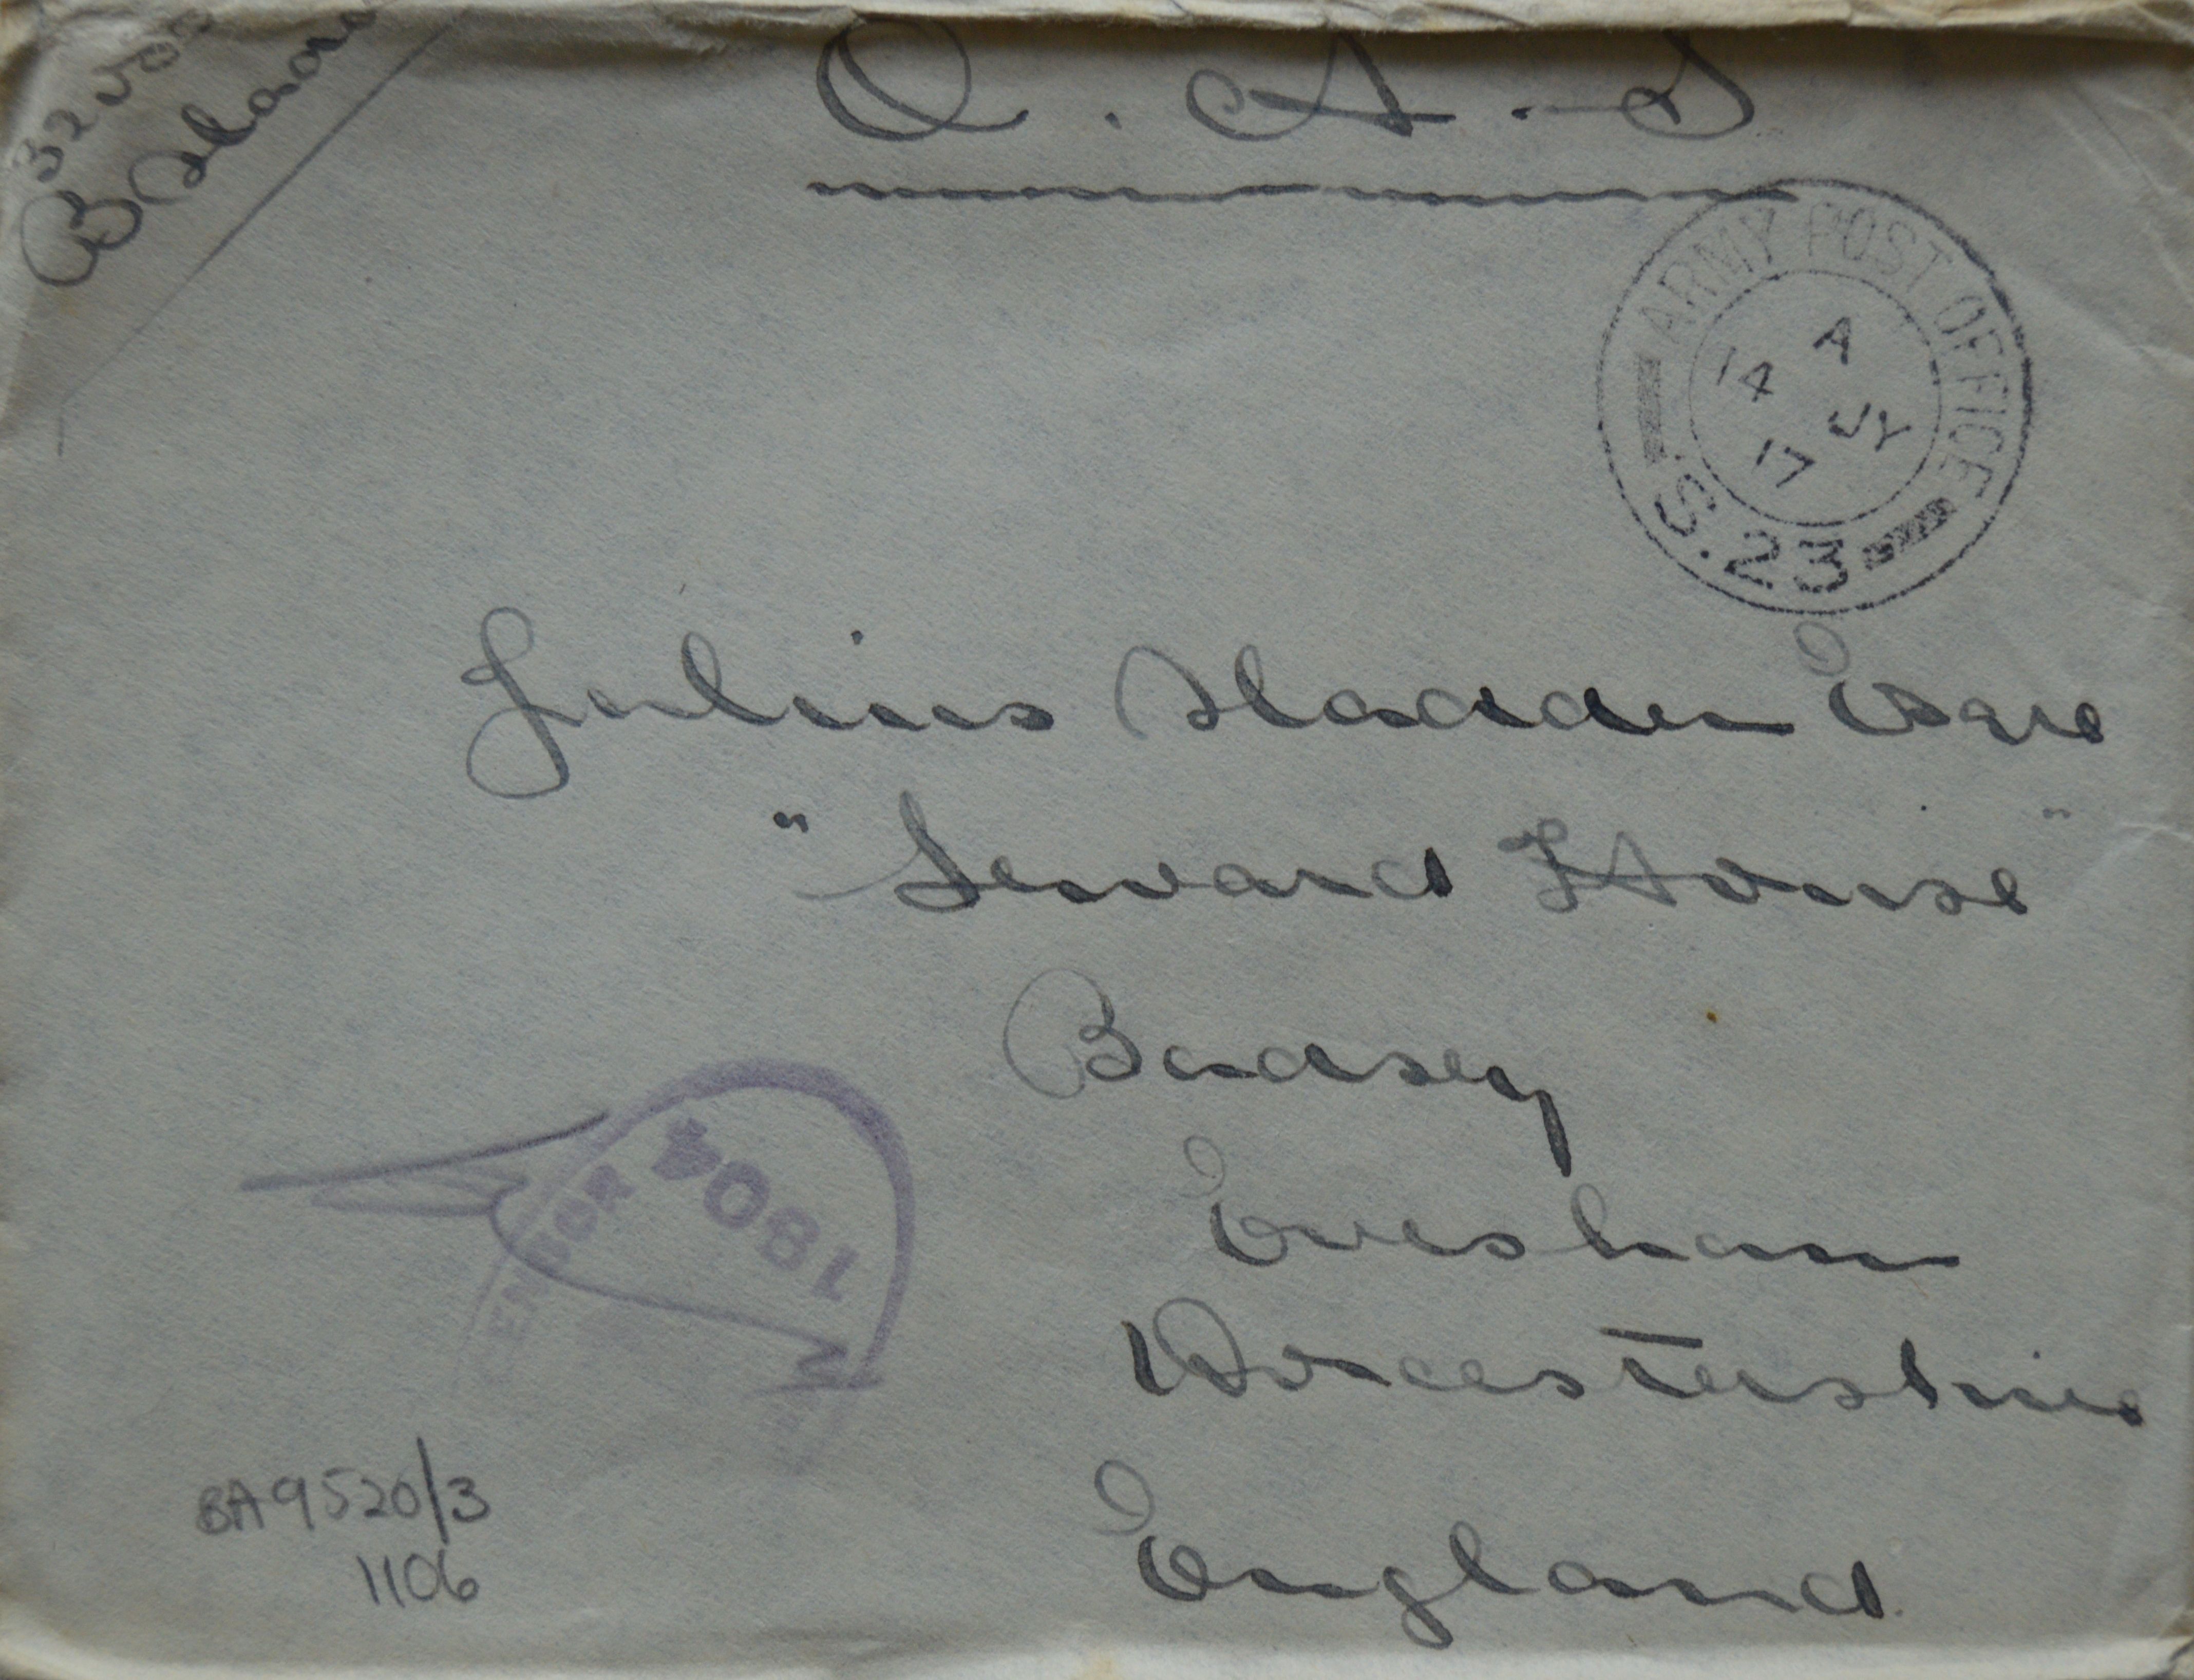 32
B
O.A.S
ARMY POST OFFICE
A
14 JY
17
S.23
Julius Sladden Esqre
"Seward House"
Badsey
Evesham
Worcestershire
England
CENSOR
1804
BA9520/3
1106